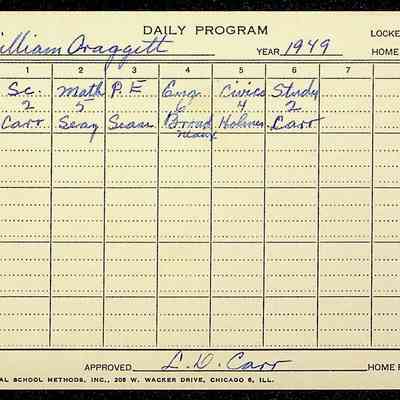 DAILY PROGRAM
LOCKE
William Draggett YEAR 1949 HOME
1 2 3 4 5 6 7
Sc. Math P.E Eng. Civics Study
2 5 6 4 2
Carr Seay Sean Broad Holmes Carr
APPROVED L. D. Carr HOME R
AL SCHOOL METHODS, INC., 208 W. WACKER DRIVE, CHICAGO 6, ILL.